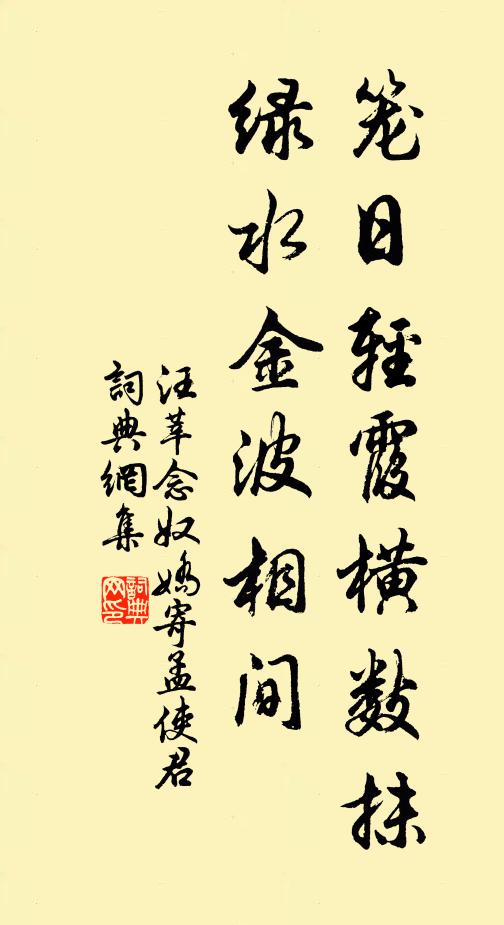 笼日轻霞横数抹
绿水金波相间
汪莘念奴娇寄孟使君
词典网集
詞典
网印